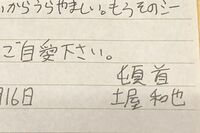 からうらやましい。もうそのシー
ご自愛下さい。
頓首
月16日 土屋 和也